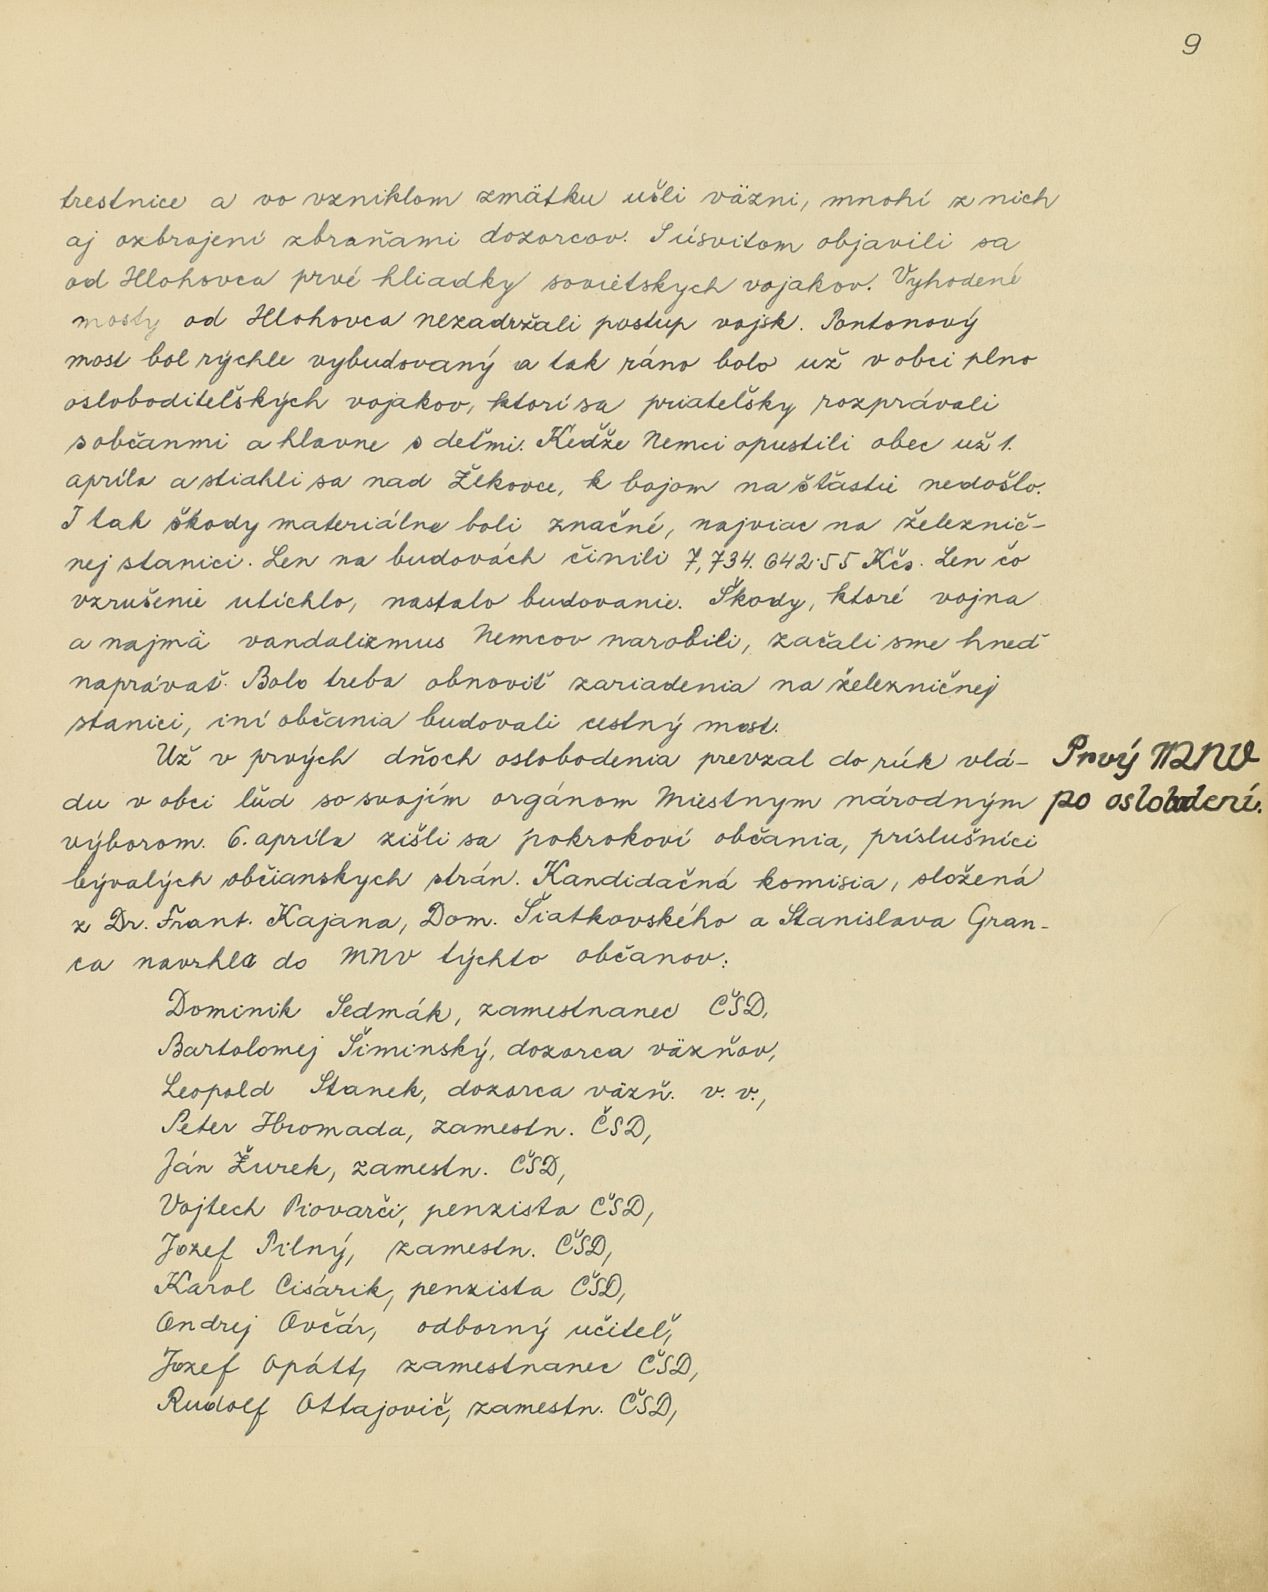 9
trestnice a vo vzniklom zmätku ušli väzni, mnohí z nich
aj ozbrojení zbraňami dozorcov. S úsvitom objavili sa
od Hlohovca prvé hliadky sovietskych vojakov. Vyhodené
mosty od Hlohovca nezadržali postup vojsk. Pontonový
most bol rýchle vybudovaný a tak ráno bolo už v obci plno
osloboditeľských vojakov, ktorí sa priateľsky rozprávali
s občanmi a hlavne s deťmi. Keďže Nemci opustili obec už 1.
apríla a stiahli sa nad Žlkovce, k bojom na šťastie nedošlo.
I tak škody materiálne boli značné, najviac na željeznič-
nej stanici. Len na budovách činili 7,734.642·55 Kčs. Len čo
vzrušenie utíchlo, nastalo budovanie. Škody, ktoré vojna
a najmä vandalizmus Nemcov narobili, začali sme hneď
naprávať. Bolo treba obnoviť zariadenia na železničnej
stanici, iní občania budovali cestný most.
Už v prvých dňoch oslobodenia prevzal do rúk vlá- Prvý MNV
du v obci ľud so svojím orgánom Miestnym národným po oslobodení.
výborom. 6. apríla zišli sa pokrokoví občania, príslušníci
bývalých občianskych strán. Kandidačná komisia, složená
z Dr. Frant. Kajana, Dom. Šiatkovského a Stanislava Gran-
ca navrhla do MNV týchto občanov:
Dominik Sedmák, zamestnanec ČSD,
Bartolomej Šiminský, dozorca väzňov,
Leopold Stanek, dozorca väzň. v. v.,
Peter Hromada, zamestn. ČSD,
Ján Žurek, zamestn. ČSD,
Vojtech Piovarči, penzista ČSD,
Jozef Pilný, zamestn. ČSD,
Karol Cisárik, penzista ČSD,
Ondrej Ovčár, odborný učiteľ,
Jozef Opátt, zamestnanec ČSD,
Rudolf Ottajovič, zamestn. ČSD,